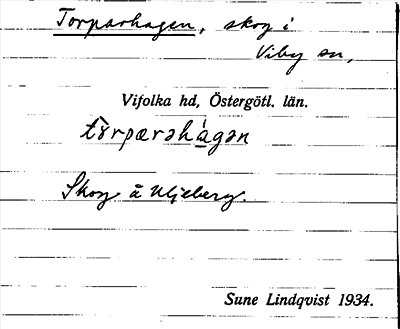 Torparhagen, skog i
Viby sn,
Vifolka hd, Östergötl. län.
Skog å Uljeberg.
Sune Lindqvist 1934.